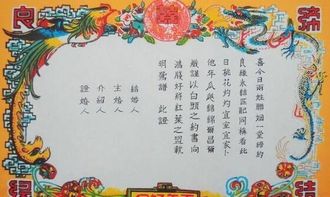 締
良
喜今日兩姓聯姻一堂締約
良緣永結匹配同稱看此
日桃花灼灼宜室宜家卜
他年瓜瓞綿綿爾昌爾
熾謹以白頭之約書向
鴻箋好將紅葉之盟載
明鴛譜 此證
結婚人
主婚人
介紹人
證婚人
結